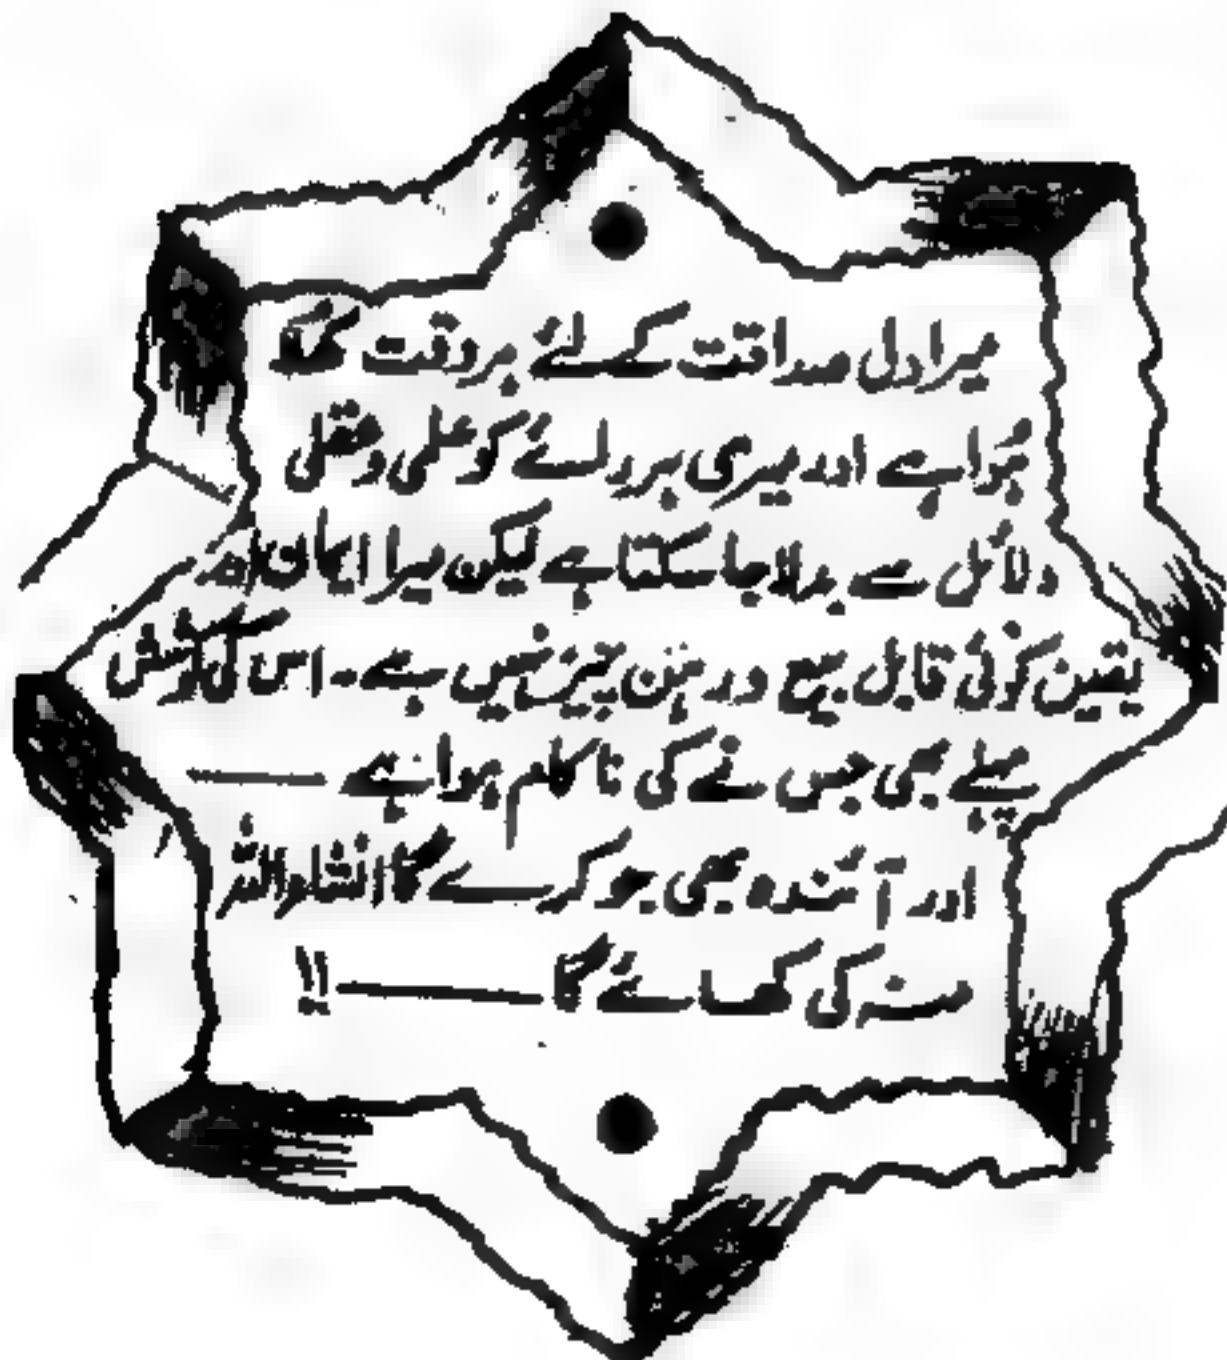 میرا دل صداقت کے لئے ہر وقت کھلا
ہوا ہے اور میری ہر رائے کو علمی و عقلی
دلائل سے بدلا جا سکتا ہے لیکن میرا ایمان اور
یقین کوئی قابل بیع و رہن چیز نہیں ہے۔ اس کی کوشش
پہلے بھی جس نے کی ناکام ہوا ہے ———
اور آئندہ بھی جو کرے گا انشاء اللہ
منہ کی کھائے گا ——— !!